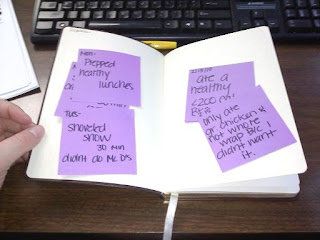 Mon-
Prepped
healthy
lunches
Tues-
shoveled
snow
30 min
didnt do Mc D's
ate a
healthy
<200
only ate
gr. chicken &
not whole
wrap B/c I
didnt want
it.